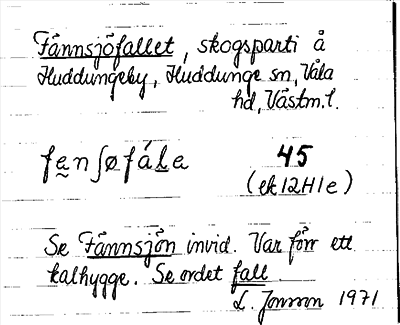 Fännsjöfallet, skogsparti å
Huddungeby, Huddunge sn, Våla
hd, Västm. l.
fe̮nʃøfála 45
(ek 12H1e)
Se Fännsjön invid. Var förr ett
kalhygge. Se ordet fall.
L. Jonson 1971